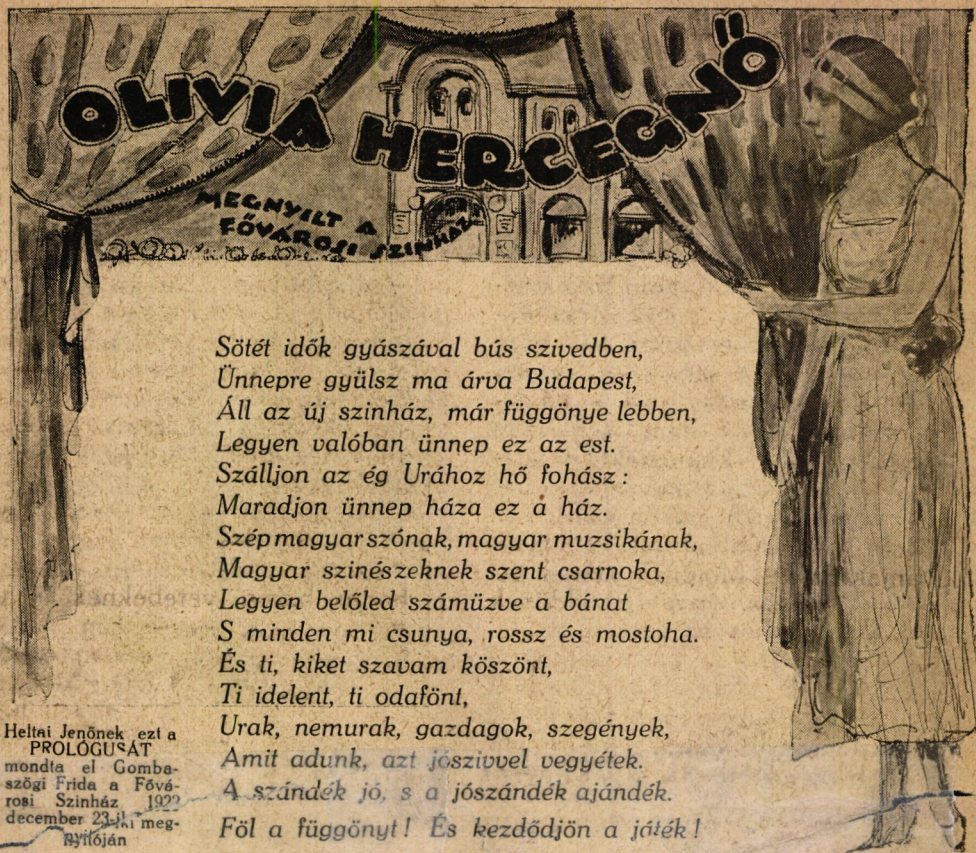 OLIVIA HERCEGNŐ
MEGNYILT A
FŐVÁROSI SZINHÁZ
Sötét idők gyászával bús szivedben,
Ünnepre gyülsz ma árva Budapest,
Áll az új szinház, már függönye lebben,
Legyen valóban ünnep ez az est.
Szálljon az ég Urához hő fohász :
Maradjon ünnep háza ez a ház.
Szép magyar szónak, magyar muzsikának,
Magyar szinészeknek szent csarnoka,
Legyen belőled számüzve a bánat
S minden mi csunya, rossz és mostoha.
És ti, kiket szavam köszönt,
Ti idelent, ti odafönt,
Urak, nemurak, gazdagok, szegények,
Amit adunk, azt jószivvel vegyétek.
A szándék jó, s a jószándék ajándék.
Föl a függönyt ! És kezdődjön a játék !
Heltai Jenőnek ezt a
PROLÓGUSÁT
mondta el Gomba-
szögi Frida a Fővá-
rosi Szinház 1922
december 23-iki meg-
nyitóján